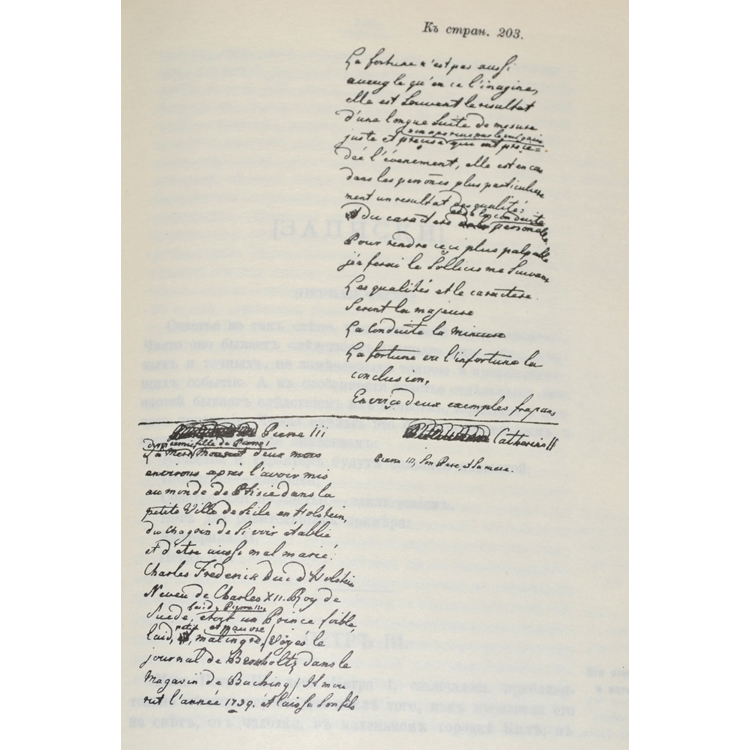 Къ стран. 203.
La fortune n'est pas aussi
aveugle qu'on se l'imagine,
elle est souvent le resultat
d'une longue suite de mesure
juste et precise qui ont prece-
dé l'évenement, elle est encor
dans les personnes plus particuliere
ment un resultat des qualités
du caractere et de la conduite personelle
Pour rendre ceçi plus palpable
j'en ferai le Sillogisme Suivant
Les qualités et le caractere
Seront la majeure
La Conduite la mineure
La fortune ou l'infortune la
conclusion,
En voiçe deux exemples frapans
Pierre III
Catherine II
fille de Pierre I
La Mere Mourut deux mois
environs après l'avoir mis
au monde de Ptisie dans la
petite Ville de Kile en Holstein
du chagrin de S'i voir établie
et d'etre aussi mal mariè.
Pierre III, Son Pere, et Sa mere.
Charles Frederik Duc d'Holstein
Neveu de Charles XII. Roy de
Suede, etoit un Prince foible
laid, petit et pauvre malingre / Voyés le
journal de Bergholtz dans le
Magazin de Buching / Il mou
rut l'année 1739. et laissa Son fils